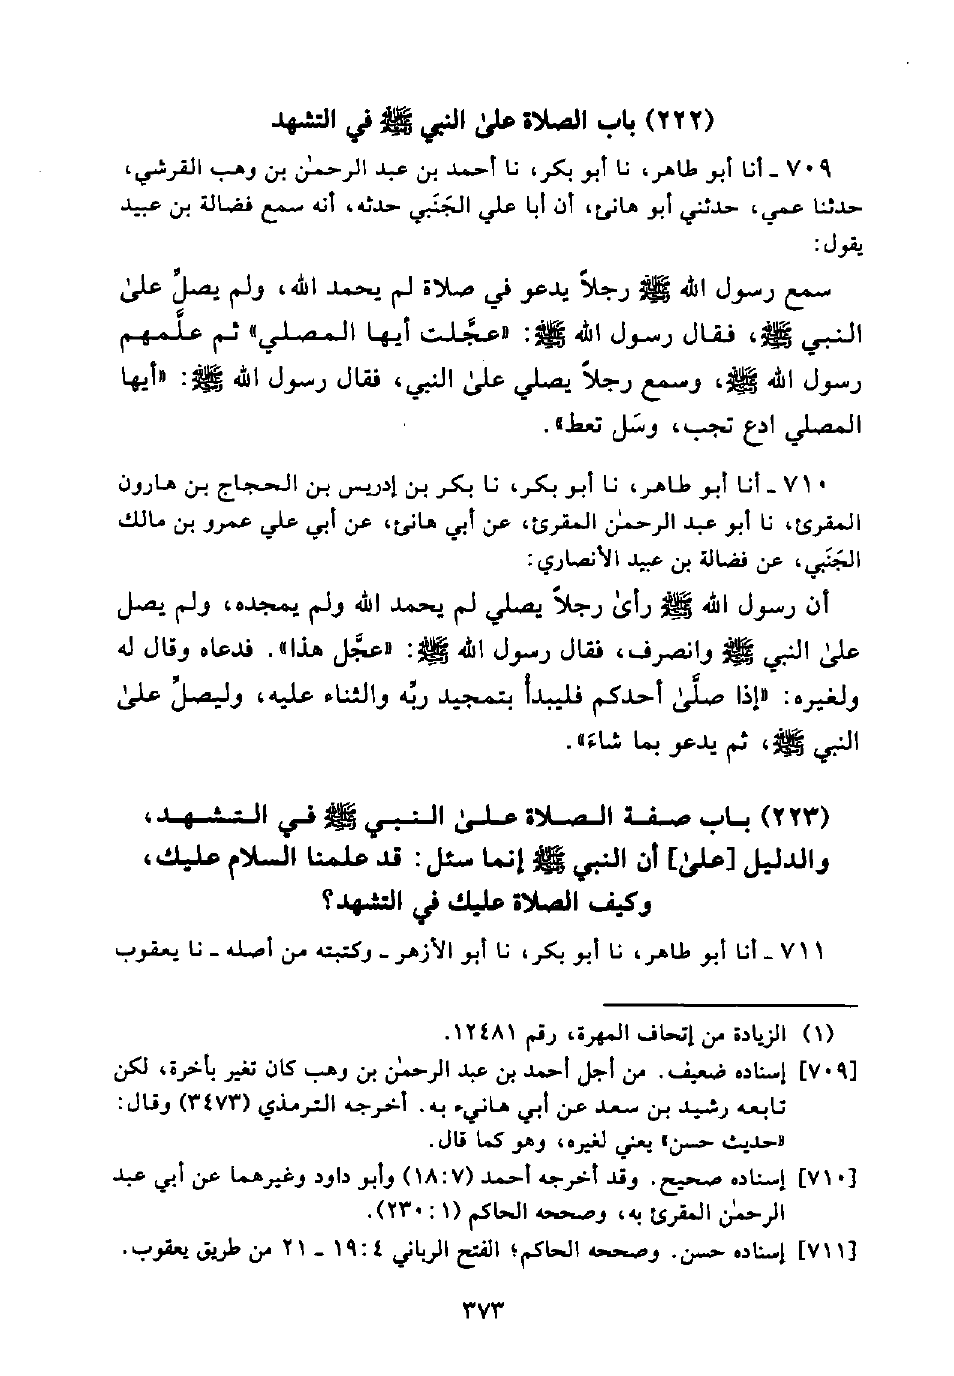 (٢٢٢) باب الصلاة علىٰ النبي ﷺ في التشهد
٧٠٩ ـ أنا أبو طاهر، نا أبو بكر، نا أحمد بن عبد الرحمٰن بن وهب القرشي،
حدثنا عمي، حدثني أبو هانئ، أن أبا علي الجَنَبي حدثه، أنه سمع فضالة بن عبيد
يقول:
سمع رسول الله ﷺ رجلاً يدعو في صلاة لم يحمد الله، ولم يصلِّ علىٰ
النبي ﷺ، فقال رسول الله ﷺ: «عجَّلت أيها المصلي» ثم علَّمهم
رسول الله ﷺ، وسمع رجلاً يصلي علىٰ النبي، فقال رسول الله ﷺ: «أيها
المصلي ادع تجب، وسَل تعط».
٧١٠ ـ أنا أبو طاهر، نا أبو بكر، نا بكر بن إدريس بن الحجاج بن هارون
المقرئ، نا أبو عبد الرحمٰن المقرئ، عن أبي هانئ، عن أبي علي عمرو بن مالك
الجَنَبي، عن فضالة بن عبيد الأنصاري:
أن رسول الله ﷺ رأىٰ رجلاً يصلي لم يحمد الله ولم يمجده، ولم يصل
علىٰ النبي ﷺ وانصرف، فقال رسول الله ﷺ: «عجَّل هذا». فدعاه وقال له
ولغيره: «إذا صلَّىٰ أحدكم فليبدأ بتمجيد ربِّه والثناء عليه، وليصلِّ علىٰ
النبي ﷺ، ثم يدعو بما شاءَ».
(٢٢٣) باب صفة الصلاة علىٰ النبي ﷺ في التشهد،
والدليل [علىٰ] أن النبي ﷺ إنما سئل: قد علمنا السلام عليك،
وكيف الصلاة عليك في التشهد؟
٧١١ ـ أنا أبو طاهر، نا أبو بكر، نا أبو الأزهر ـ وكتبته من أصله ـ نا يعقوب
(١) الزيادة من إتحاف المهرة، رقم ١٢٤٨١.
[٧٠٩] إسناده ضعيف. من أجل أحمد بن عبد الرحمٰن بن وهب كان تغير بأخرة، لكن
تابعه رشيد بن سعد عن أبي هانيء به. أخرجه الترمذي (٣٤٧٣) وقال:
«حديث حسن» يعني لغيره، وهو كما قال.
[٧١٠] إسناده صحيح. وقد أخرجه أحمد (١٨:٧) وأبو داود وغيرهما عن أبي عبد
الرحمٰن المقرئ به، وصححه الحاكم (١: ٢٣٠).
[٧١١] إسناده حسن. وصححه الحاكم؛ الفتح الرباني ٤: ١٩ ـ ٢١ من طريق يعقوب.
٣٧٣